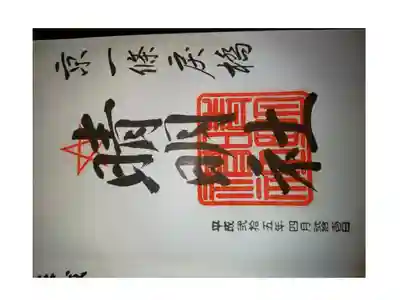 京一條戻橋
晴明社
平成弐拾五年四月弐拾壱日